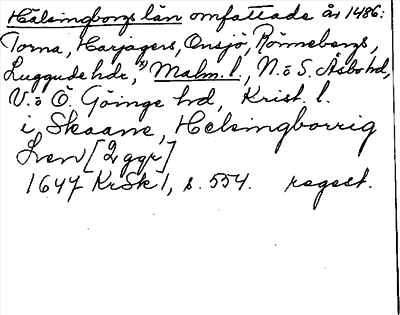 Hälsingborgs län omfattade år 1486:
Torna, Harjagers, Onsjö, Rönnebergs,
Luggude hdr, Malm. l., N. o S. Åsbo hd,
V. o Ö. Göinge hd, Krist. l.
i Skaane, Helsingborrig
Len [2 ggr]
1647 KrSk 1, s. 554. regest.